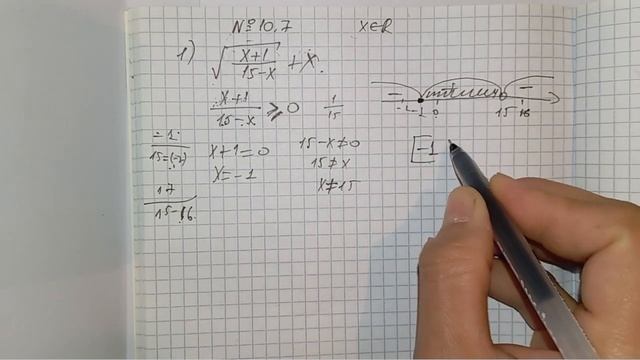 № 10.7 x∈R
1) √((x+1)/(15-x)) + x.
(x+1)/(15-x) ⩾ 0
1/15
-1/(15-(-2))
17/(15-16)
x+1=0
x=-1
15-x≠0
15≠x
x≠15
- + -
-2 -1 0 15 16
[-1